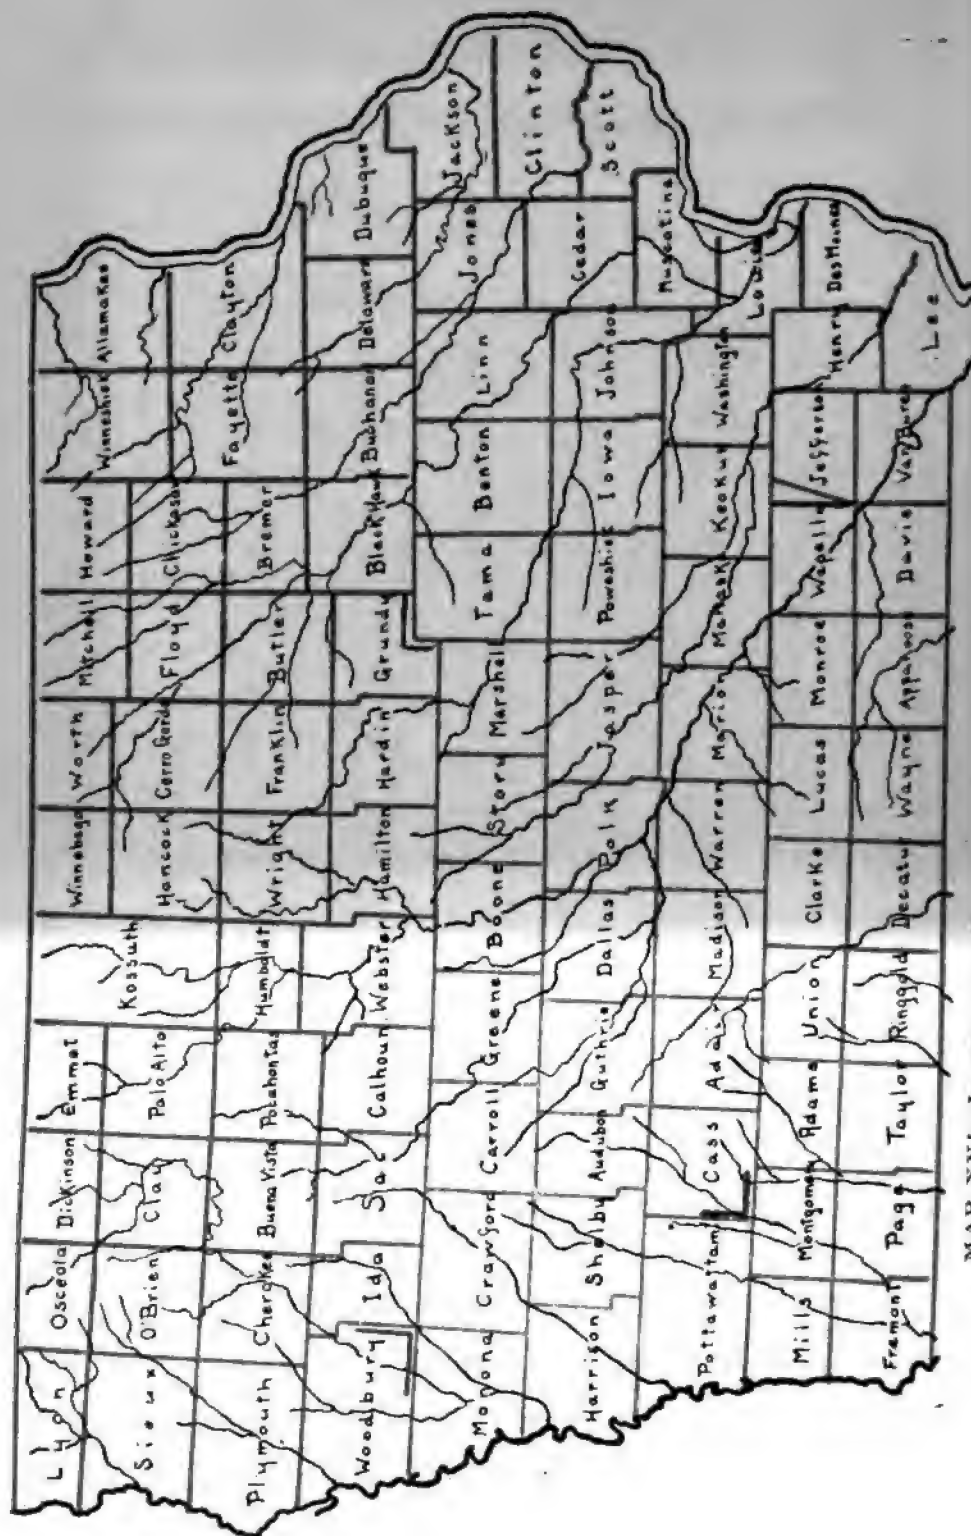 Lyon
Osceola
Dickinson
Emmet
Kossuth
Winnebago
Worth
Mitchell
Howard
Winneshiek
Allamakee
Sioux
O'Brien
Clay
Palo Alto
Hancock
Cerro Gordo
Floyd
Chickasaw
Fayette
Clayton
Plymouth
Cherokee
Buena Vista
Pocahontas
Humboldt
Wright
Franklin
Butler
Bremer
Woodbury
Ida
Sac
Calhoun
Webster
Hamilton
Hardin
Grundy
Black Hawk
Buchanan
Delaware
Dubuque
Monona
Crawford
Carroll
Greene
Boone
Story
Marshall
Tama
Benton
Linn
Jones
Jackson
Harrison
Shelby
Audubon
Guthrie
Dallas
Polk
Jasper
Poweshiek
Iowa
Johnson
Cedar
Clinton
Scott
Pottawattam
Cass
Adair
Madison
Warren
Marion
Mahaska
Keokuk
Washington
Muscatine
Louisa
Mills
Montgomery
Adams
Union
Clarke
Lucas
Monroe
Wapello
Jefferson
Henry
Des Moines
Fremont
Page
Taylor
Ringgold
Decatur
Wayne
Appanoose
Davis
Van Buren
Lee